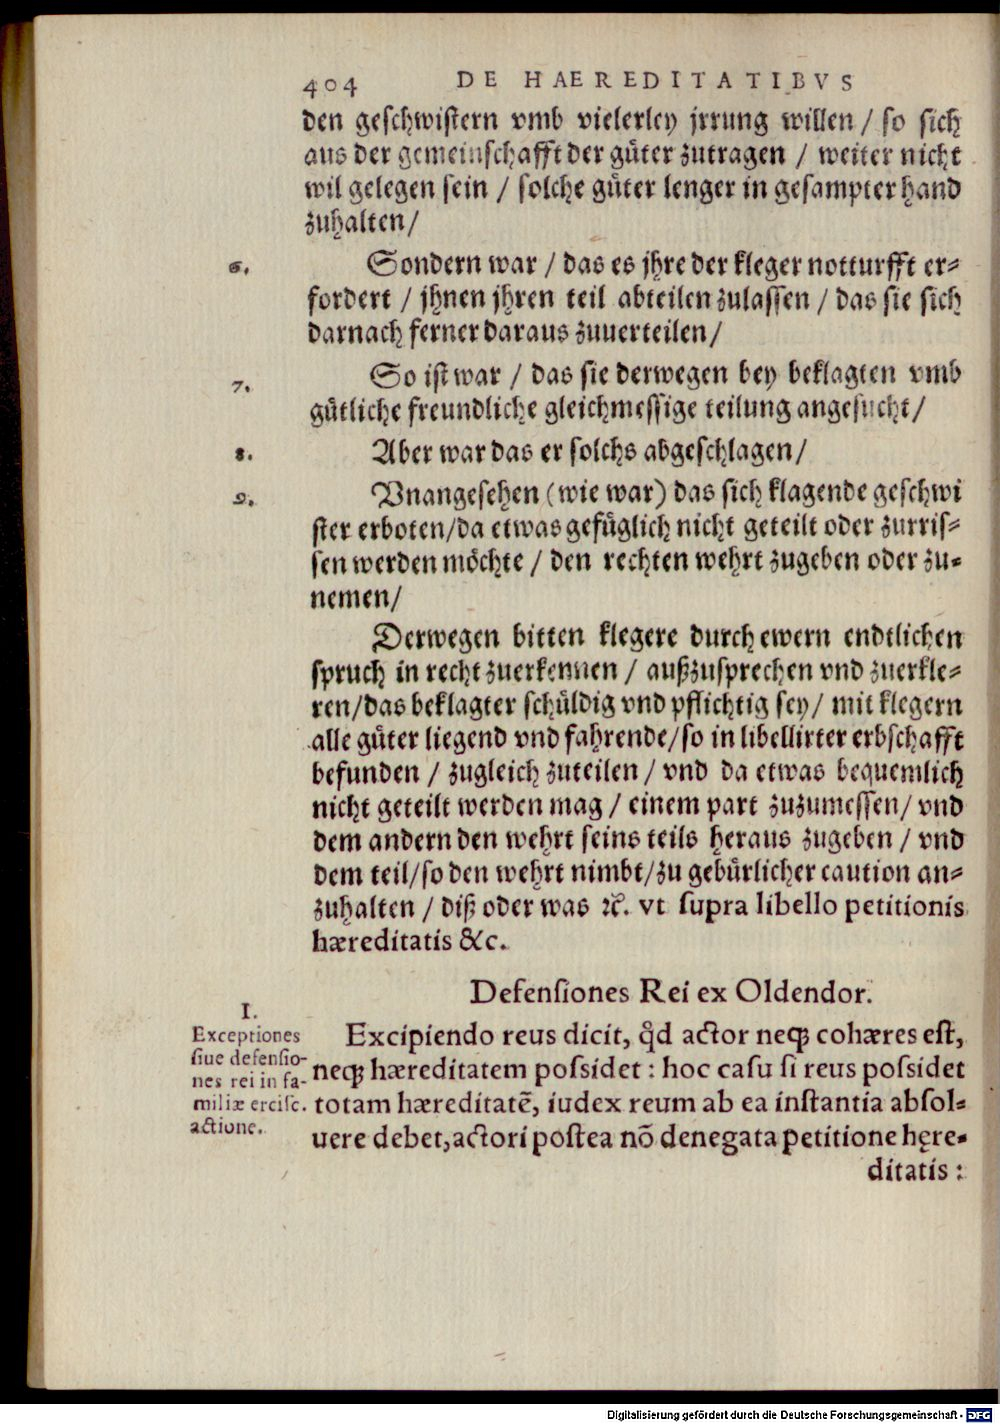 404 DE HAEREDITATIBVS
den geschwistern vmb vielerley jrrung willen / so sich
aus der gemeinschafft der güter zutragen / weiter nicht
wil gelegen sein / solche güter lenger in gesampter hand
zuhalten /
6. Sondern war / das es jhre der kleger notturfft er=
fordert / jhnen jhren teil abteilen zulassen / das sie sich
darnach ferner daraus zuuerteilen /
7. So ist war / das sie derwegen bey beklagten vmb
gütliche freundliche gleichmessige teilung angesucht /
8. Aber war das er solchs abgeschlagen /
9. Vnangesehen (wie war) das sich klagende geschwi
ster erboten / da etwas gefüglich nicht geteilt oder zurris=
sen werden möchte / den rechten wehrt zugeben oder zu=
nemen /
Derwegen bitten klegere durch ewern endtlichen
spruch in recht zuerkennen / außzusprechen vnd zuerkle=
ren / das beklagter schüldig vnd pflichtig sey / mit klegern
alle güter liegend vnd fahrende / so in libellirter erbschafft
befunden / zugleich zuteilen / vnd da etwas bequemlich
nicht geteilt werden mag / einem part zuzumessen / vnd
dem andern den wehrt seins teils heraus zugeben / vnd
dem teil / so den wehrt nimbt / zu gebürlicher caution an=
zuhalten / diß oder was ⁊c. vt supra libello petitionis
hæreditatis &c.
Defensiones Rei ex Oldendor.
I.
Exceptiones
siue defensio-
nes rei in fa-
miliæ ercisc.
actione.
Excipiendo reus dicit, qđ actor neqꝫ cohæres est,
neqꝫ hæreditatem possidet : hoc casu si reus possidet
totam hæreditatẽ, iudex reum ab ea instantia absol=
uere debet, actori postea nõ denegata petitione hęre=
ditatis :
Digitalisierung gefördert durch die Deutsche Forschungsgemeinschaft - DFG